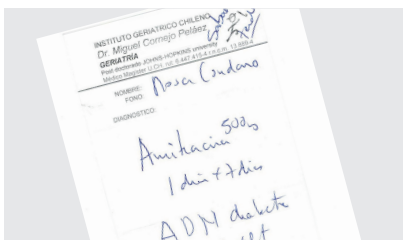 INSTITUTO GERIATRICO CHILENO
Dr. Miguel Cornejo Peláez
GERIATRÍA
Post doctorado JOHNS HOPKINS university
Médico Magister U.CH. rut. 6.447.415-4 r.n.c.m. 13.886-4
NOMBRE: Rosa Condano
FONO:
DIAGNOSTICO:
Amikacina 500
1 diia x 7 dias
ADM diabete